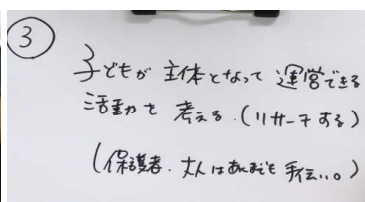 ③
子どもが 主体となって 運営できる
活動を 考える.(リサーチする)
(保護者.大人はあくまでも 手伝い。)